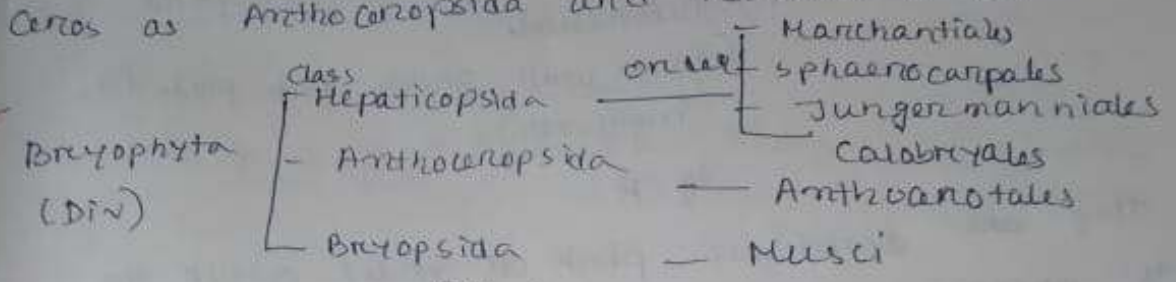 Ceros as Anthoceropsida and
Class
Bryophyta
(Div)
Hepaticopsida
order
Marchantiales
Sphaerocarpales
Jungermanniales
Calobryales
Anthoceropsida
Anthocerotales
Bryopsida — Musci